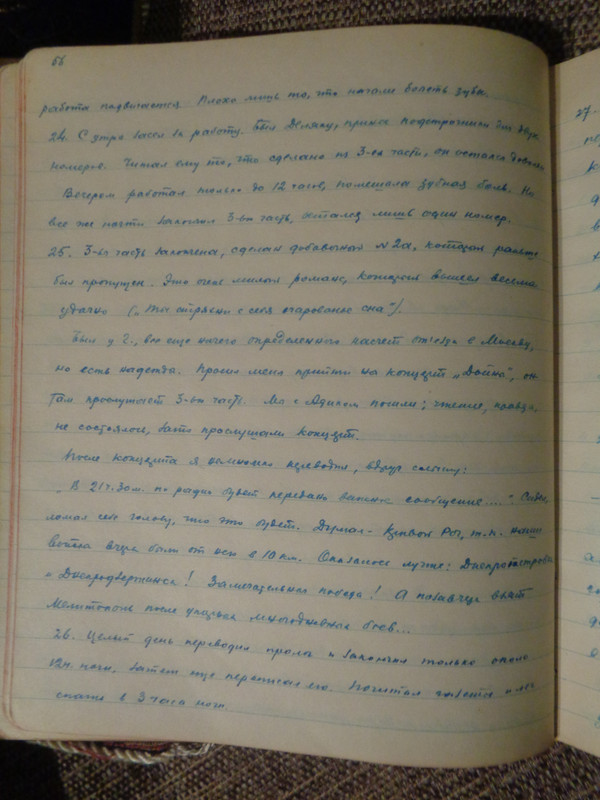 56
работа подвигается. Плохо лишь то, что начали болеть зубы.
24. С утра засел за работу. Был Деляну, принес подстрочники для двух
номеров. Читал ему то, что сделано из 3-ей части, он остался доволен.
Вечером работал только до 12 часов, помешала зубная боль. Но
все же почти закончил 3-ью часть, остался лишь один номер.
25. 3-ья часть закончена, сделан добавочный №2а, который раньше
был пропущен. Это очень милый романс, который вышел весьма
удачно („Ты стряхни с себя очарованье сна").
Был у Г., все еще ничего определенного насчет от'езда в Москву,
но есть надежда. Просил меня прийти на концерт „Дойна", он
там прослушает 3-ью часть. Мы с Адиком пошли; чтение, правда,
не состоялось, зато прослушали концерт.
После концерта я переводил, вдруг слышу:
„В 21ч.30м. по радио будет передано важное сообщение....". Сидел
ломал себе голову, что это будет. Думал - Кривой Рог, т.к. наши
войска вчера были от него в 10 км. Оказалось лучше: Днепропетровск
и Днепродзержинск! Замечательная победа! А позавчера взят
Мелитополь после упорных многодневных боев...
26. Целый день переводил пролог и закончил только около
12ч. ночи, затем еще переписал его. Почитал газеты и лег
спать в 3 часа ночи.
27-